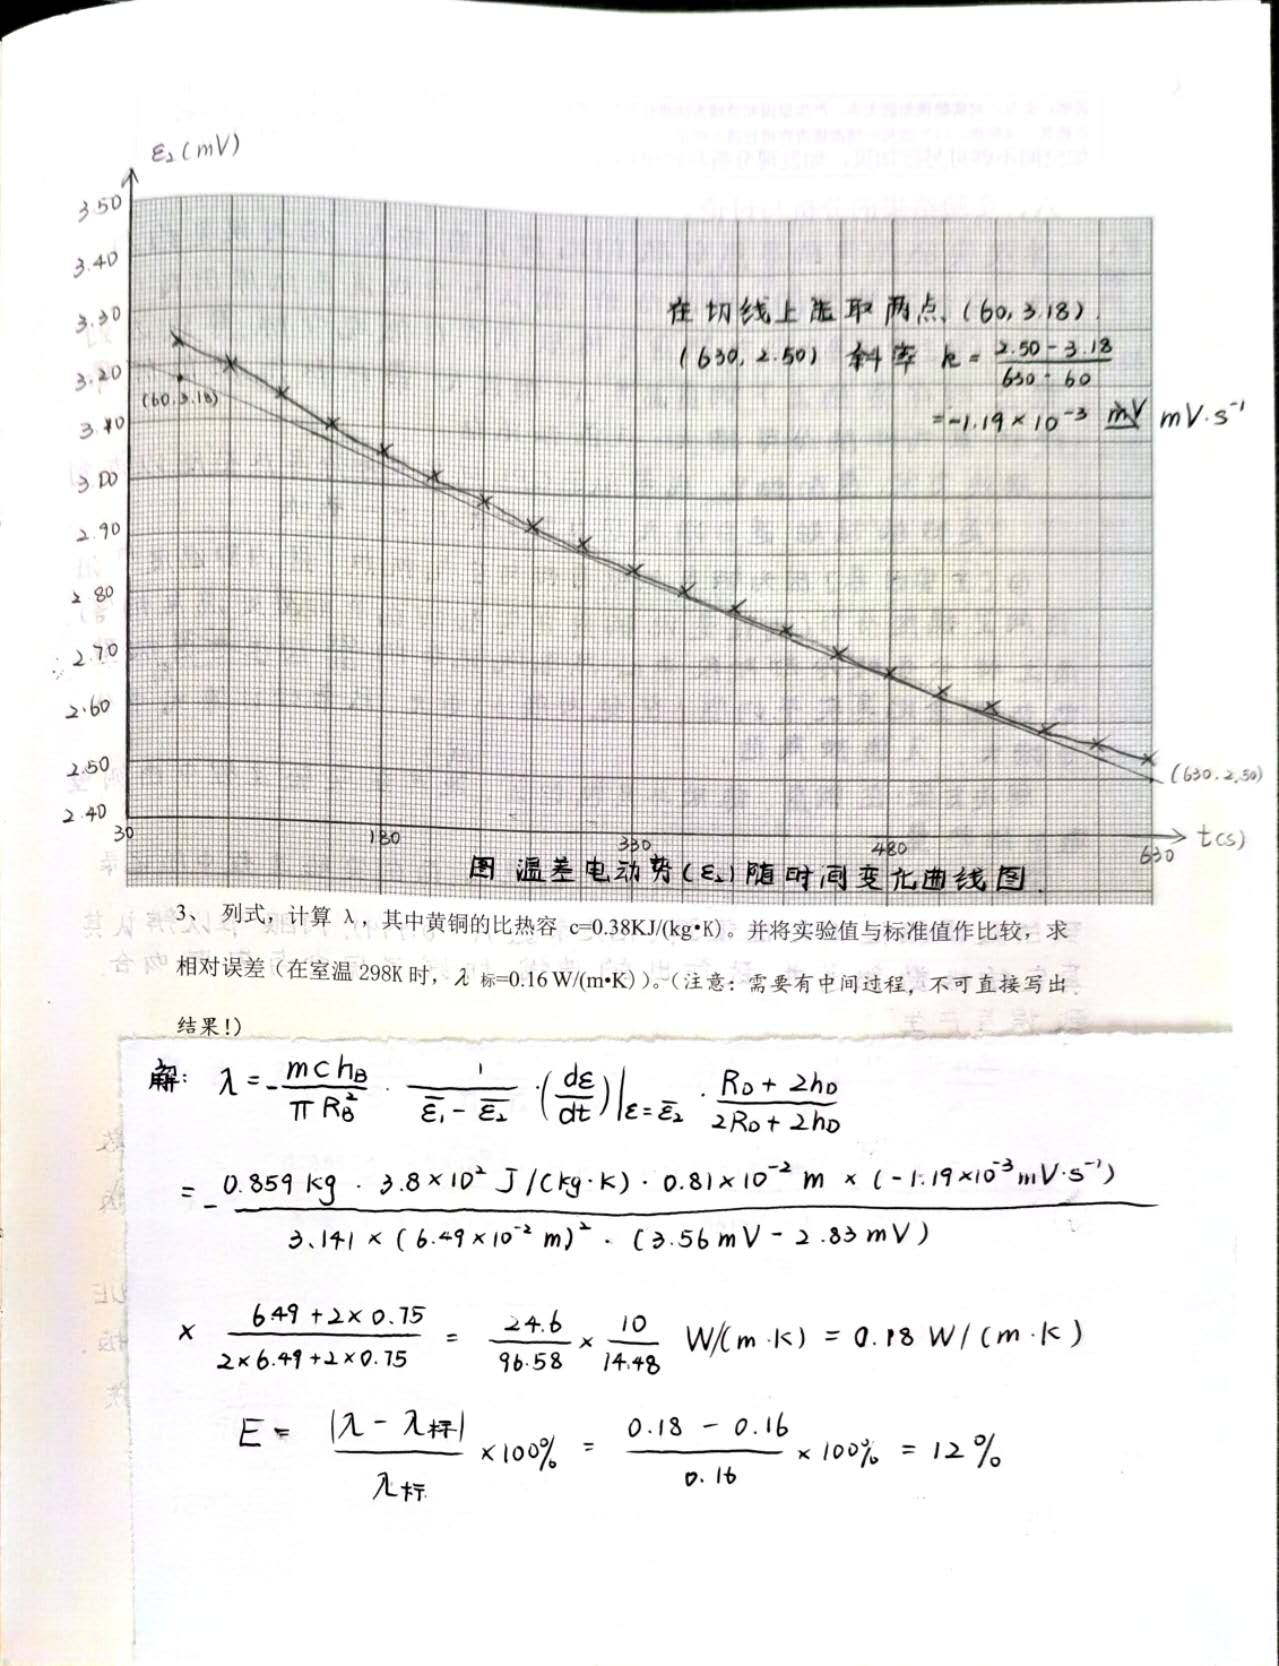 ε₂(mV)
3.50
3.40
3.30
3.20
3.10
3.00
2.90
2.80
2.70
2.60
2.50
2.40
在切线上选取两点(60, 3.18).
(630, 2.50) 斜率 k = (2.50-3.18)/(630-60)
=-1.19×10⁻³ mV·s⁻¹
(60,3.18)
(630,2.50)
30 180 330 480 630 t(s)
图 温差电动势(ε₂)随时间变化曲线图.
3、 列式，计算 λ，其中黄铜的比热容 c=0.38KJ/(kg•K)。并将实验值与标准值作比较，求
相对误差（在室温 298K 时，λ 标=0.16 W/(m•K)）。（注意：需要有中间过程，不可直接写出
结果！）
解: λ = - (m c h_B)/(π R_B²) · 1/(ε̄₁ - ε̄₂) · (dε/dt)|ε=ε̄₂ · (R_D + 2h_D)/(2R_D + 2h_D)
= - (0.859 kg · 3.8×10² J/(kg·K) · 0.81×10⁻² m × (-1.19×10⁻³ mV·s⁻¹))/(3.141 × (6.49×10⁻² m)² · (3.56 mV - 2.83 mV))
× (6.49+2×0.75)/(2×6.49+2×0.75) = 24.6/96.58 × 10/14.48 W/(m·K) = 0.18 W/(m·K)
E = |λ - λ标|/λ标 ×100% = (0.18 - 0.16)/0.16 ×100% = 12%